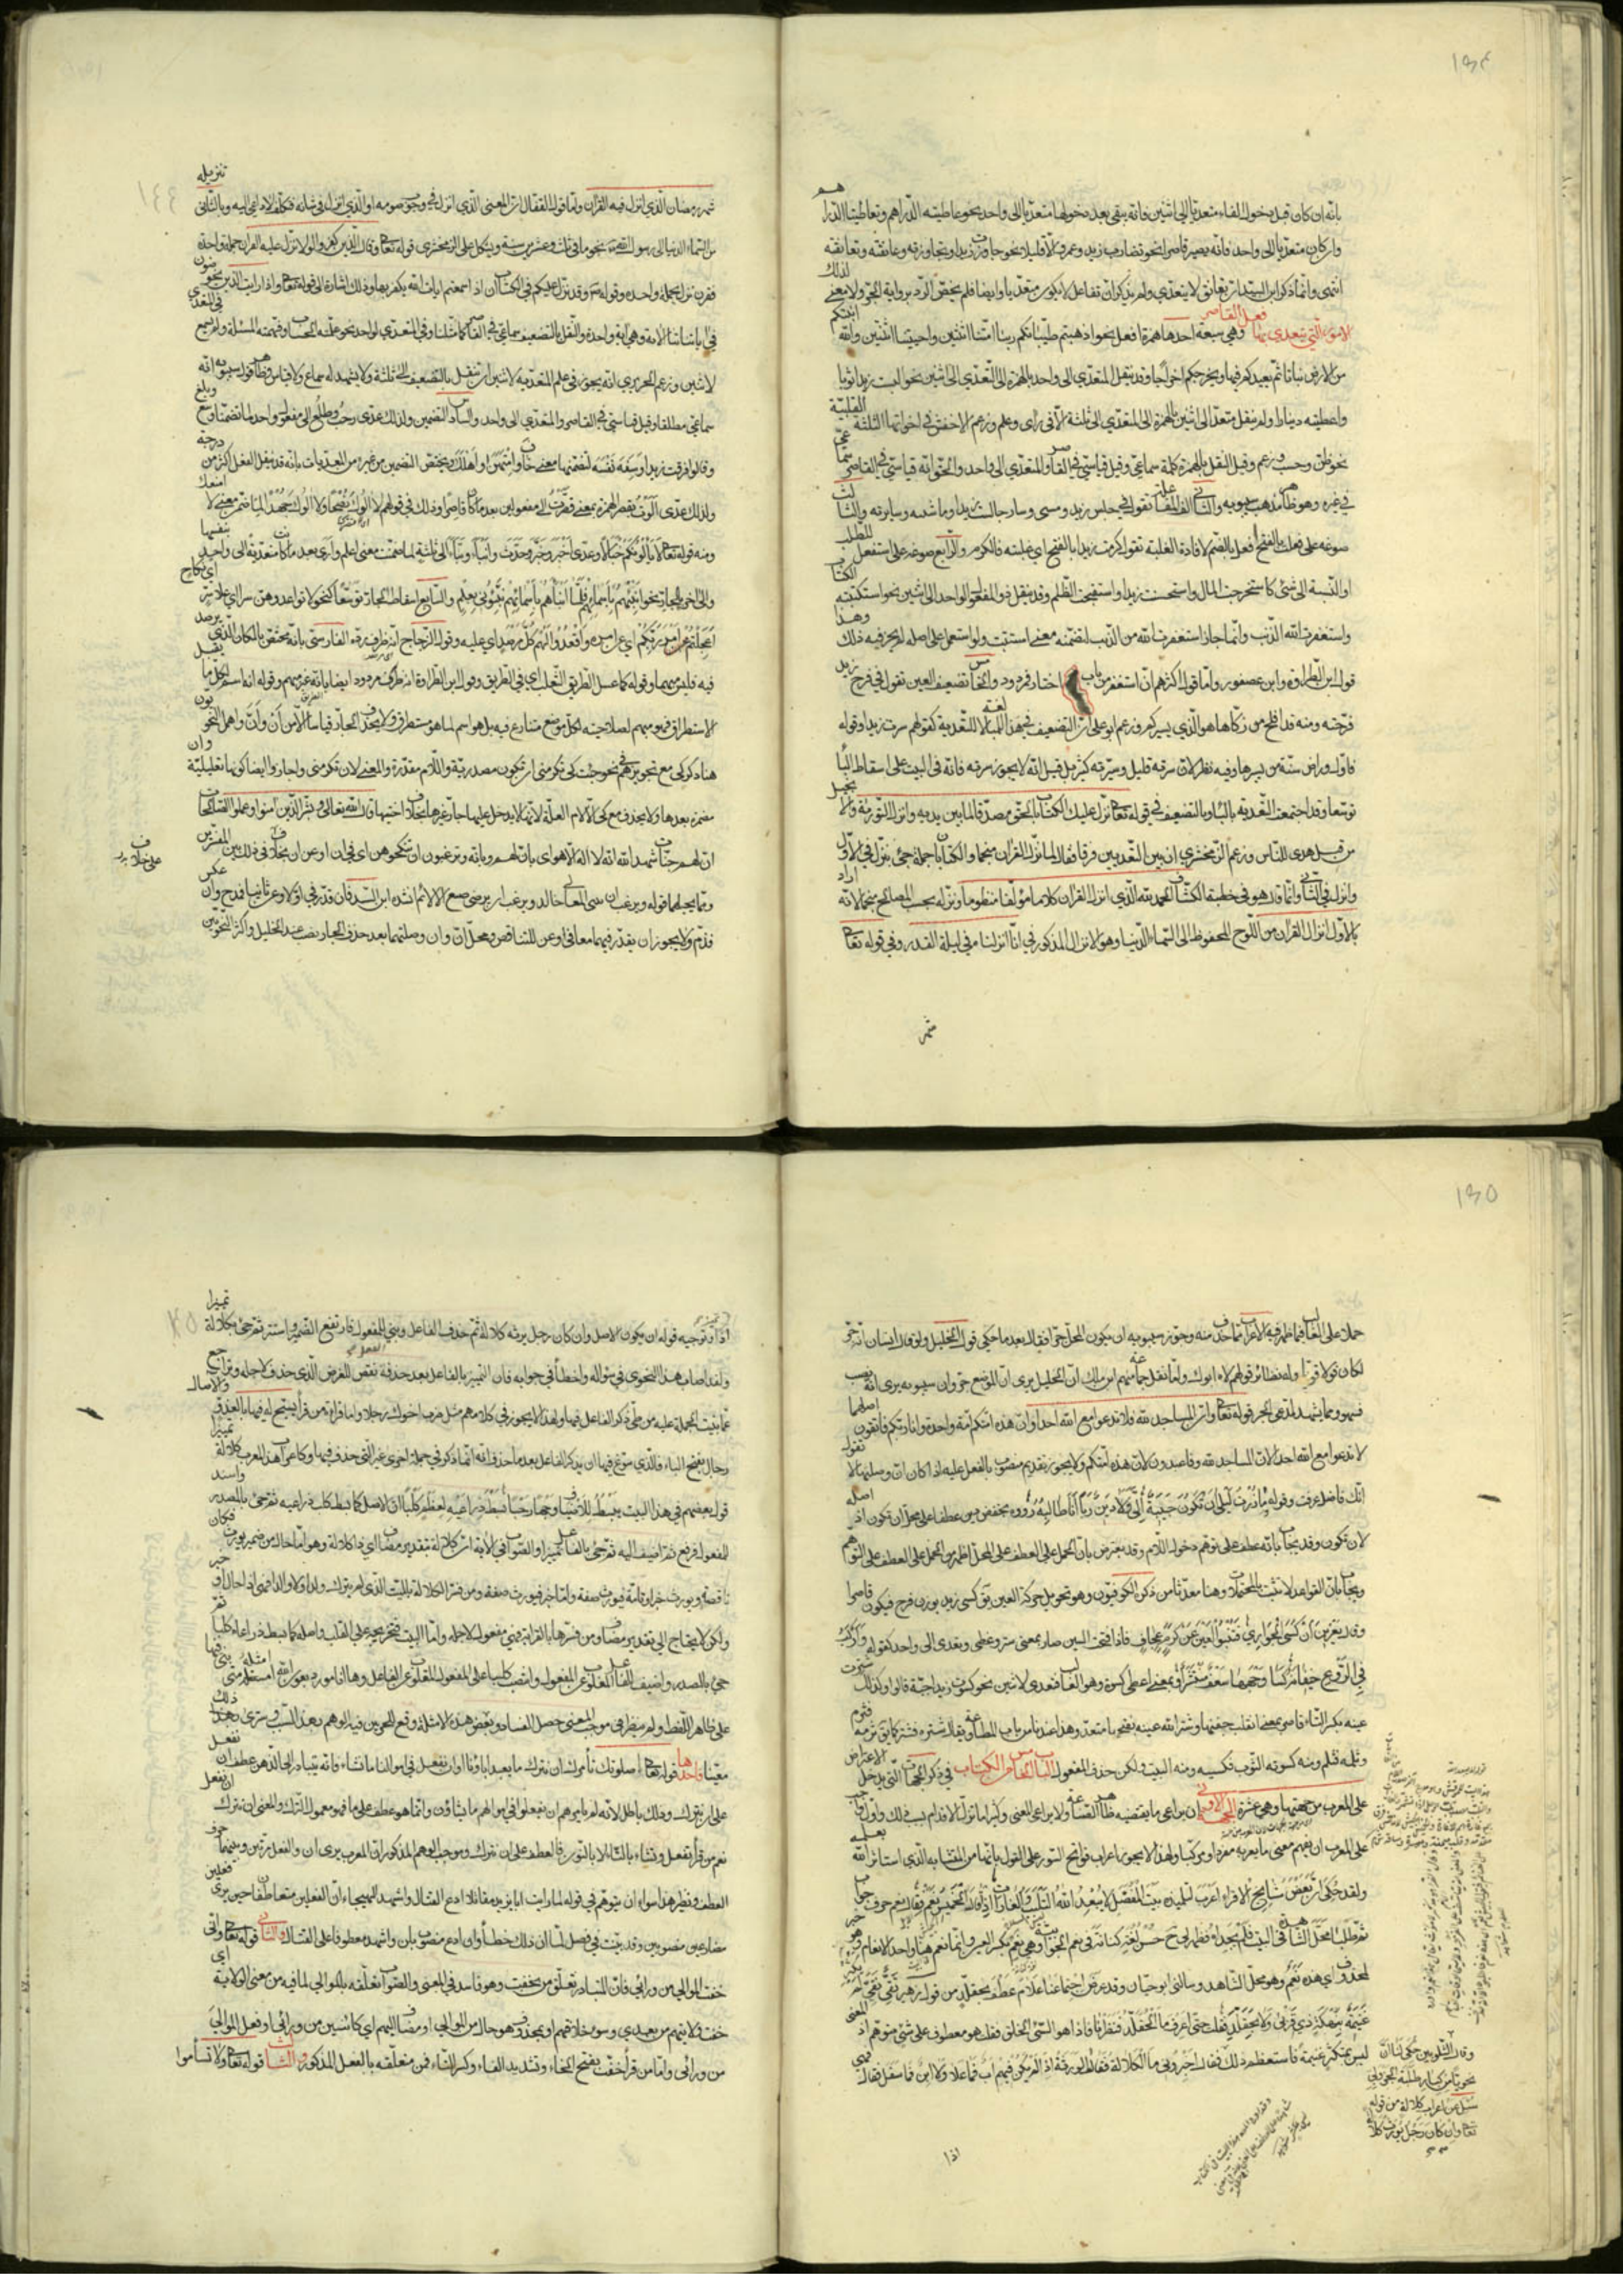 ١٩٤
بانه ان كان قبل دخول التاء متعديا الى اثنين فانه يبقى بعد دخولها متعديا الى واحد نحو عاطيته الدراهم وتعاطينا الدراهم
وان كان متعديا الى واحد فانه يصير قاصرا نحو تضارب زيد وعمرو الا قليلا نحو جاوزت زيدا وتجاوزته وعانقته وتعانقته
انتهى وانما ذكر ابن السيد ان تعانق لا يتعدى ولم يذكر ان تفاعل لا يكون متعديا وايضا فلم يخص الرد برواية الجر ولا معنى لذلك
الامور التي يتعدى بها الفعل القاصر وهي سبعة احدها همزة افعل نحو اذهبتم طيباتكم ربنا امتنا اثنتين واحييتنا اثنتين والله انبتكم
من الارض نباتا ثم يعيدكم فيها ويخرجكم اخراجا وقد ينقل المتعدي الى واحد بالهمزة الى التعدي الى اثنين نحو البست زيدا ثوبا
واعطيته دينارا ولم ينقل متعد الى اثنين بالهمزة الى المتعدي الى ثلثة الا في راى وعلم وزعم الاخفش في اخواتهما الثلثة القلبية
نحو ظن وحسب وزعم وقيل النقل بالهمزة كله سماعي وقيل قياسي في القاصر والمتعدي الى واحد والحق انه قياسي في القاصر سماعي
في غيره وهو ظاهر مذهب سيبويه والثاني الف المفاعلة تقول في جلس زيد ومشى وسار جالست زيدا وماشيته وسايرته والثالث
صوغه على فعلت بالفتح افعل بالضم لافادة الغلبة تقول كرمت زيدا بالفتح اي غلبته في الكرم والرابع صوغه على استفعل للطلب
او النسبة الى شئ كاستخرجت المال واستحسنت زيدا واستقبحت الظلم وقد ينقل ذو المفعول الواحد الى اثنين نحو استكتبته الكتاب
واستغفرت الله الذنب وانما جاز استغفرت الله من الذنب لتضمنه معنى استتبت ولو استعمل على اصله لم يجز فيه ذلك وهذا
قول ابن الطراوة وابن عصفور واما قول اكثرهم ان استغفر من باب اختار فمردود والخامس تضعيف العين تقول في فرح زيد
فرحته ومنه قد افلح من زكاها هو الذي يسيركم وزعم ابو علي ان التضعيف في هذا للمبالغة لا للتعدية كقولهم سرت زيدا وقوله
فاول راض سنة من يسيرها وفيه نظر لان سرته قليل وسيرته كثير بل قيل انه لا يجوز سرته فانه في البيت على اسقاط الباء
توسعا وقد اجتمعت التعدية بالباء وبالتضعيف في قوله تعالى نزل عليك الكتاب بالحق مصدقا لما بين يديه وانزل التورية والانجيل
من قبل هدى للناس وزعم الزمخشري ان بين التعديين فرقا فقال لما نزل القران منجما والكتابان جملة جئ بنزل في الاول
وانزل في الثاني وانما قال هو في خطبة الكشاف الحمد لله الذي انزل القران كلاما مؤلفا منظوما ونزله بحسب المصالح منجما لانه اراد
بالاول انزال القران من اللوح المحفوظ الى السماء الدنيا وهو الانزال المذكور في انا انزلناه في ليلة القدر وفي قوله تعالى
شهر
شهر رمضان الذي انزل فيه القران واما قول القفال ان المعنى الذي انزل في وجوب صومه او الذي انزل في شانه فتكلف لا داعي اليه وبالثاني تنزيله
من السماء الدنيا الى رسول الله نجوما في ثلث وعشرين سنة ويشكل على الزمخشري قوله تعالى وقال الذين كفروا لولا نزل عليه القران جملة واحدة
فقرن نزل بجملة واحدة وقوله وقد نزل عليكم في الكتاب ان اذا سمعتم ايات الله يكفر بها وذلك اشارة الى قوله تعالى واذا رايت الذين يخوضون
في اياتنا الاية وهي اية واحدة والنقل بالتضعيف سماعي في القاصر كما مثلنا وفي المتعدي لواحد نحو علمته الحساب وفهمته المسئلة ولم يسمع في المتعدي
لاثنين وزعم الحريري انه يجوز في علم المتعدية لاثنين ان تنقل بالتضعيف الى ثلثة ولا يشهد له سماع ولا قياس وظاهر قول سيبويه انه
سماعي مطلقا وقيل قياسي في القاصر والمتعدي الى واحد والسادس التضمين ولذلك عدى رحب وطلع الى مفعول واحد لما تضمنا وسع وبلغ
وقالوا فرقت زيدا وسفه نفسه لتضمنهما معنى خاف وامتهن او اهلك ويختص التضمين من غيره من المعديات بانه قد ينقل الفعل اكثر من درجة
ولذلك عدى الوت بقصر الهمزة بمعنى قصرت الى مفعولين بعد ما كان قاصرا وذلك في قولهم لا الوك نصحا ولا الوك جهدا لما ضمن معنى لا امنعك
ومنه قوله تعالى لا يالونكم خبالا وعدى اخبر وخبر وحدث وانبا ونبا الى ثلثة لما ضمنت معنى اعلم وارى بعد ما كانت متعدية الى واحد بنفسها
والى اخر بالجار نحو انبئهم باسمائهم فلما انباهم باسمائهم نبئوني بعلم والسابع اسقاط الجار توسعا نحو لا تواعدوهن سرا اي على سر اي نكاح
اعجلتم امر ربكم اي عن امره واقعدوا لهم كل مرصد اي عليه وقول الزجاج انه ظرف رده الفارسي بانه مختص بالمكان الذي يرصد
فيه فليس مبهما وقوله كما عسل الطريق الثعلب اي في الطريق وقول ابن الطراوة انه ظرف مردود ايضا بانه غير مبهم وقوله انه اسم لكل ما يقبل
الاستطراق فهو مبهم لصلاحيته لكل موضع منازع فيه بل هو اسم لما هو مستطرق ولا يحذف الجار قياسا الا مع ان وان واهمل النحويون
هنا ذكر كي مع تجويزهم في نحو جئت كي تكرمني ان تكون كي مصدرية واللام مقدرة والمعنى لان تكرمني واجازوا ايضا كونها تعليلية وان
مضمرة بعدها ولا يحذف مع كي الا لام العلة لانها لا يدخل عليها جار غيرها بخلاف اختيها قال الله تعالى وبشر الذين امنوا وعملوا الصالحات
ان لهم جنات شهد الله انه لا اله الا هو اي بان لهم وبانه وترغبون ان تنكحوهن اي في ان او عن ان على خلاف في ذلك بين المفسرين
ومما يحتملهما قوله ويرغب ان يبني المعالي خالد ويرغب ان يرضى صنيع الالائم انشده ابن السيد فان قدر في اولا وعن ثانيا فمدح وان عكس
فذم ولا يجوز ان يقدر فيهما معا في او عن للتناقض ومحل ان وان وصلتهما بعد حذف الجار نصب عند الخليل واكثر النحويين
على خلاف
١٩٥
حملا على الغالب فيما ظهر فيه الاعراب مما حذف منه وجوز سيبويه ان يكون المحل جرا فقال بعد ما حكى قول الخليل ولو قال انسان انه جر
لكان قولا قويا وله نظائر نحو قولهم لاه ابوك واما نقل جماعة منهم ابن مالك ان الخليل يرى ان الموضع جر وان سيبويه يرى انه نصب
فسهو ومما يشهد لمدعي الجر قوله تعالى وان المساجد لله فلا تدعوا مع الله احدا وان هذه امتكم امة واحدة وانا ربكم فاتقون اصلهما
لا تدعوا مع الله احدا لان المساجد لله وفاعبدون لان هذه امتكم ولا يجوز تقديم منصوب بالفعل عليه اذا كان ان وصلتها لا تقول
انك فاضل عرفت وقوله وما زرت ليلى ان تكون حبيبة الي ولا دين بها انا طالبه رووه بخفض دين عطفا على محل ان تكون اذ اصله
لان تكون وقد يجاب بانه عطف على توهم دخول اللام وقد يعترض بان الحمل على العطف على المحل اظهر من الحمل على العطف على التوهم
ويجاب بان القواعد لا تثبت بالمحتملات وهنا معد ثامن ذكره الكوفيون وهو تحويل حركة العين يقال كسي زيد بوزن فرح فيكون قاصرا
في الروع خيفانة كسا وجهها سعف منتشر او بمعنى اعطى كسوة وهو الغالب فتعدى لاثنين نحو كسوت زيدا جبة قالوا وكذلك شترت
عينه بكسر التاء قاصر بمعنى انقلب جفنها وشتر الله عينه بفتحها متعد وهذا عندنا من باب المطاوعة يقال شتره فشتر كما يقال ثرمه فثرم
وثلمه فثلم ومنه كسوته الثوب فكسيه ومنه البيت ولكن حذف المفعول الباب الخامس من الكتاب في ذكر الجهات التي يدخل الاعتراض
على المعرب من جهتها وهي عشرة الجهة الاولى ان يراعي ما يقتضيه ظاهر الصناعة ولا يراعي المعنى وكثيرا ما تزل الاقدام بسبب ذلك واول واجب
على المعرب ان يفهم معنى ما يعربه مفردا او مركبا ولهذا لا يجوز اعراب فواتح السور على القول بانها من المتشابه الذي استاثر الله بعلمه
ولقد حكي ان بعض مشايخ الاقراء اعرب لتلميذ له بيت المفصل لا يبعد الله التلبب والغارات اذ قال الخميس نعم فقال نعم حرف جواب
ثم طلبا محل الشاهد في البيت فلم يجداه فظهر لي ح حسن لغة كنانة في نعم الجوابية وهي نعم بكسر العين وانما نعم هنا واحد الانعام وهو خبر
لمحذوف اي هذه نعم وهو محل الشاهد وسالني ابو حيان وقد عرض اجتماعنا علام عطف بحقلد من قول زهير تقي نقي لم يكثر
غنيمة بنهكة ذي قربى ولا بحقلد فقلت حتى اعرف ما الحقلد فنظرناه فاذا هو السئ الخلق فقلت هو معطوف على شئ متوهم اذ المعنى
ليس بمكثر غنيمة فاستعظم ذلك فقال اخبروني ما الكلالة فقالوا الورثة اذا لم يكن فيهم اب فما علا ولا ابن فما سفل فقال فهي
وقال الشلوبين حكي لنا ان
نحويا من كبار طلبة الجزولي
سئل عن اعراب كلالة من قوله
تعالى وان كان رجل يورث كلالة
اذا
اذا تمييز وتوجيه قوله ان يكون الاصل وان كان رجل يرثه كلالة ثم حذف الفاعل وبني للمفعول فارتفع الضمير واستتر ثم جئ بكلالة تمييزا
ولقد اصاب هذا النحوي في سؤاله واخطا في جوابه فان التمييز بالفاعل بعد حذفه نقض للغرض الذي حذف لاجله وتراجع
عما بنيت الجملة عليه من طي ذكر الفاعل فيها ولهذا لا يوجد في كلامهم مثل ضرب اخوك رجلا واما قراءة من قرا يسبح له فيها بالغدو والاصال
رجال بفتح الباء فالذي سوغ فيها ان يذكر الفاعل بعد ما حذف انه انما ذكر في جملة اخرى غير التي حذف فيها وكاعراب هذا المعرب كلالة تمييزا
قول بعضهم في هذا البيت يبسط للاضياف وجها رحبا بسط ذراعيه لعظم كلبا ان الاصل كما بسط كلب ذراعيه ثم جئ بالمصدر واسند
للمفعول فرفع ثم اضيف اليه ثم جئ بالفاعل تمييزا والصواب في الاية ان كلالة بتقدير مضاف اي ذا كلالة وهو اما حال من ضمير يورث فكان
ناقصة ويورث خبر او تامة فيورث صفة واما خبر فيورث صفة ومن فسر الكلالة بالميت الذي لم يترك ولدا ولا والدا فهي ايضا حال او خبر
ولكن لا يحتاج الى تقدير مضاف ومن فسرها بالقرابة فهي مفعول لاجله واما البيت فتخريجه على القلب واصله كما بسط ذراعاه كلبا ثم
جئ بالمصدر واضيف للفاعل المقلوب عن المفعول وانتصب كلبا على المفعول المقلوب عن الفاعل وها انا مورد بعون الله امثلة متى بني فيها
على ظاهر اللفظ ولم ينظر في موجب المعنى حصل الفساد وبعض هذه الامثلة وقع للمعربين فيه الوهم بهذا السبب وسترى ذلك
معينا فاحدها قوله تعالى اصلوتك تامرك ان نترك ما يعبد اباؤنا او ان نفعل في اموالنا ما نشاء فانه يتبادر الى الذهن عطف ان نفعل
على ان نترك وذلك باطل لانه لم يامرهم ان يفعلوا في اموالهم ما يشاؤن وانما هو عطف على ما فهو معمول للترك والمعنى ان نترك ان نفعل
نعم من قرا تفعل وتشاء بالتاء لا بالنون فالعطف على ان نترك وموجب الوهم المذكور ان المعرب يرى ان والفعل مرتين وبينهما حرف
العطف ونظير هذا سواء ان يتوهم في قوله لما رايت ابا يزيد مقاتلا ادع القتال واشهد الهيجاء ان الفعلين متعاطفان حين يرى فعلين
مضارعين منصوبين وقد بينت في فصل لما ان ذلك خطا وان ادع منصوب بلن واشهد معطوف على القتال الثاني قوله تعالى واني
خفت الموالي من ورائي فان المتبادر تعلق من بخفت وهو فاسد في المعنى والصواب تعلقه بالموالي لما فيه من معنى الولاية اي
خفت ولايتهم من بعدي وسوء خلافتهم او بمحذوف هو حال من الموالي او مضاف اليهم اي كائنين من ورائي او فعل الموالي
من ورائي واما من قرا خفت بفتح الخاء وتشديد الفاء وكسر التاء فمن متعلقة بالفعل المذكور الثالث قوله تعالى ولا تساموا